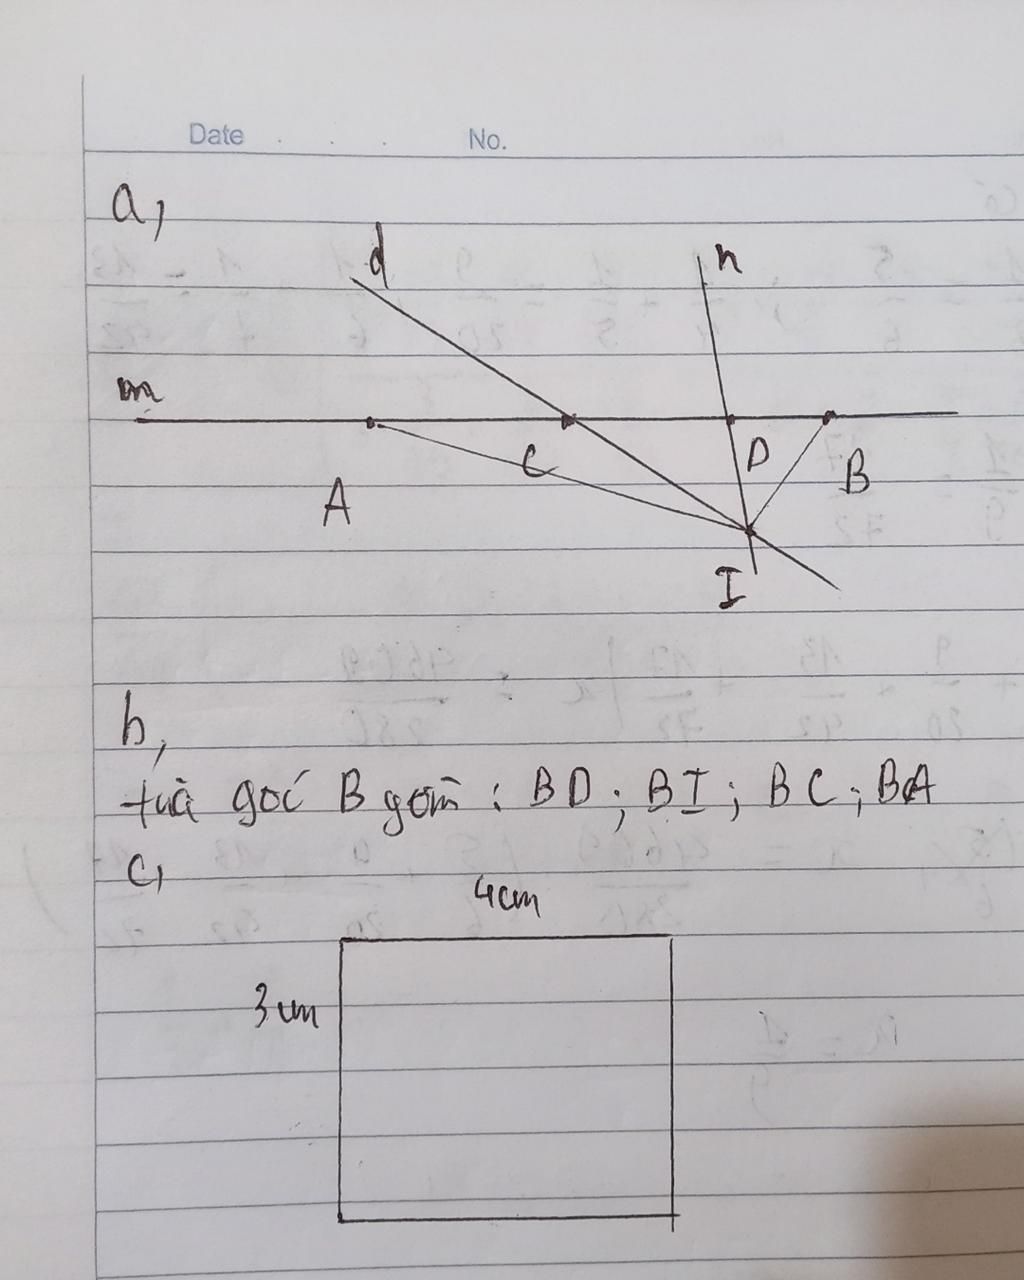 Date No.
a,
d n
m
C D B
A
I
b,
tia gốc B gồm : BD ; BI ; BC ; BA
c,
4cm
3cm